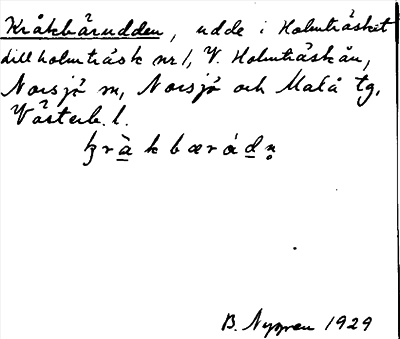 Kråkbärudden, udde i Holmträsket
till holmträsk nr 1, V. Holmträskån,
Norsjö sn, Norsjö och Malå tg,
Västerb. l.
B. Nygren 1929